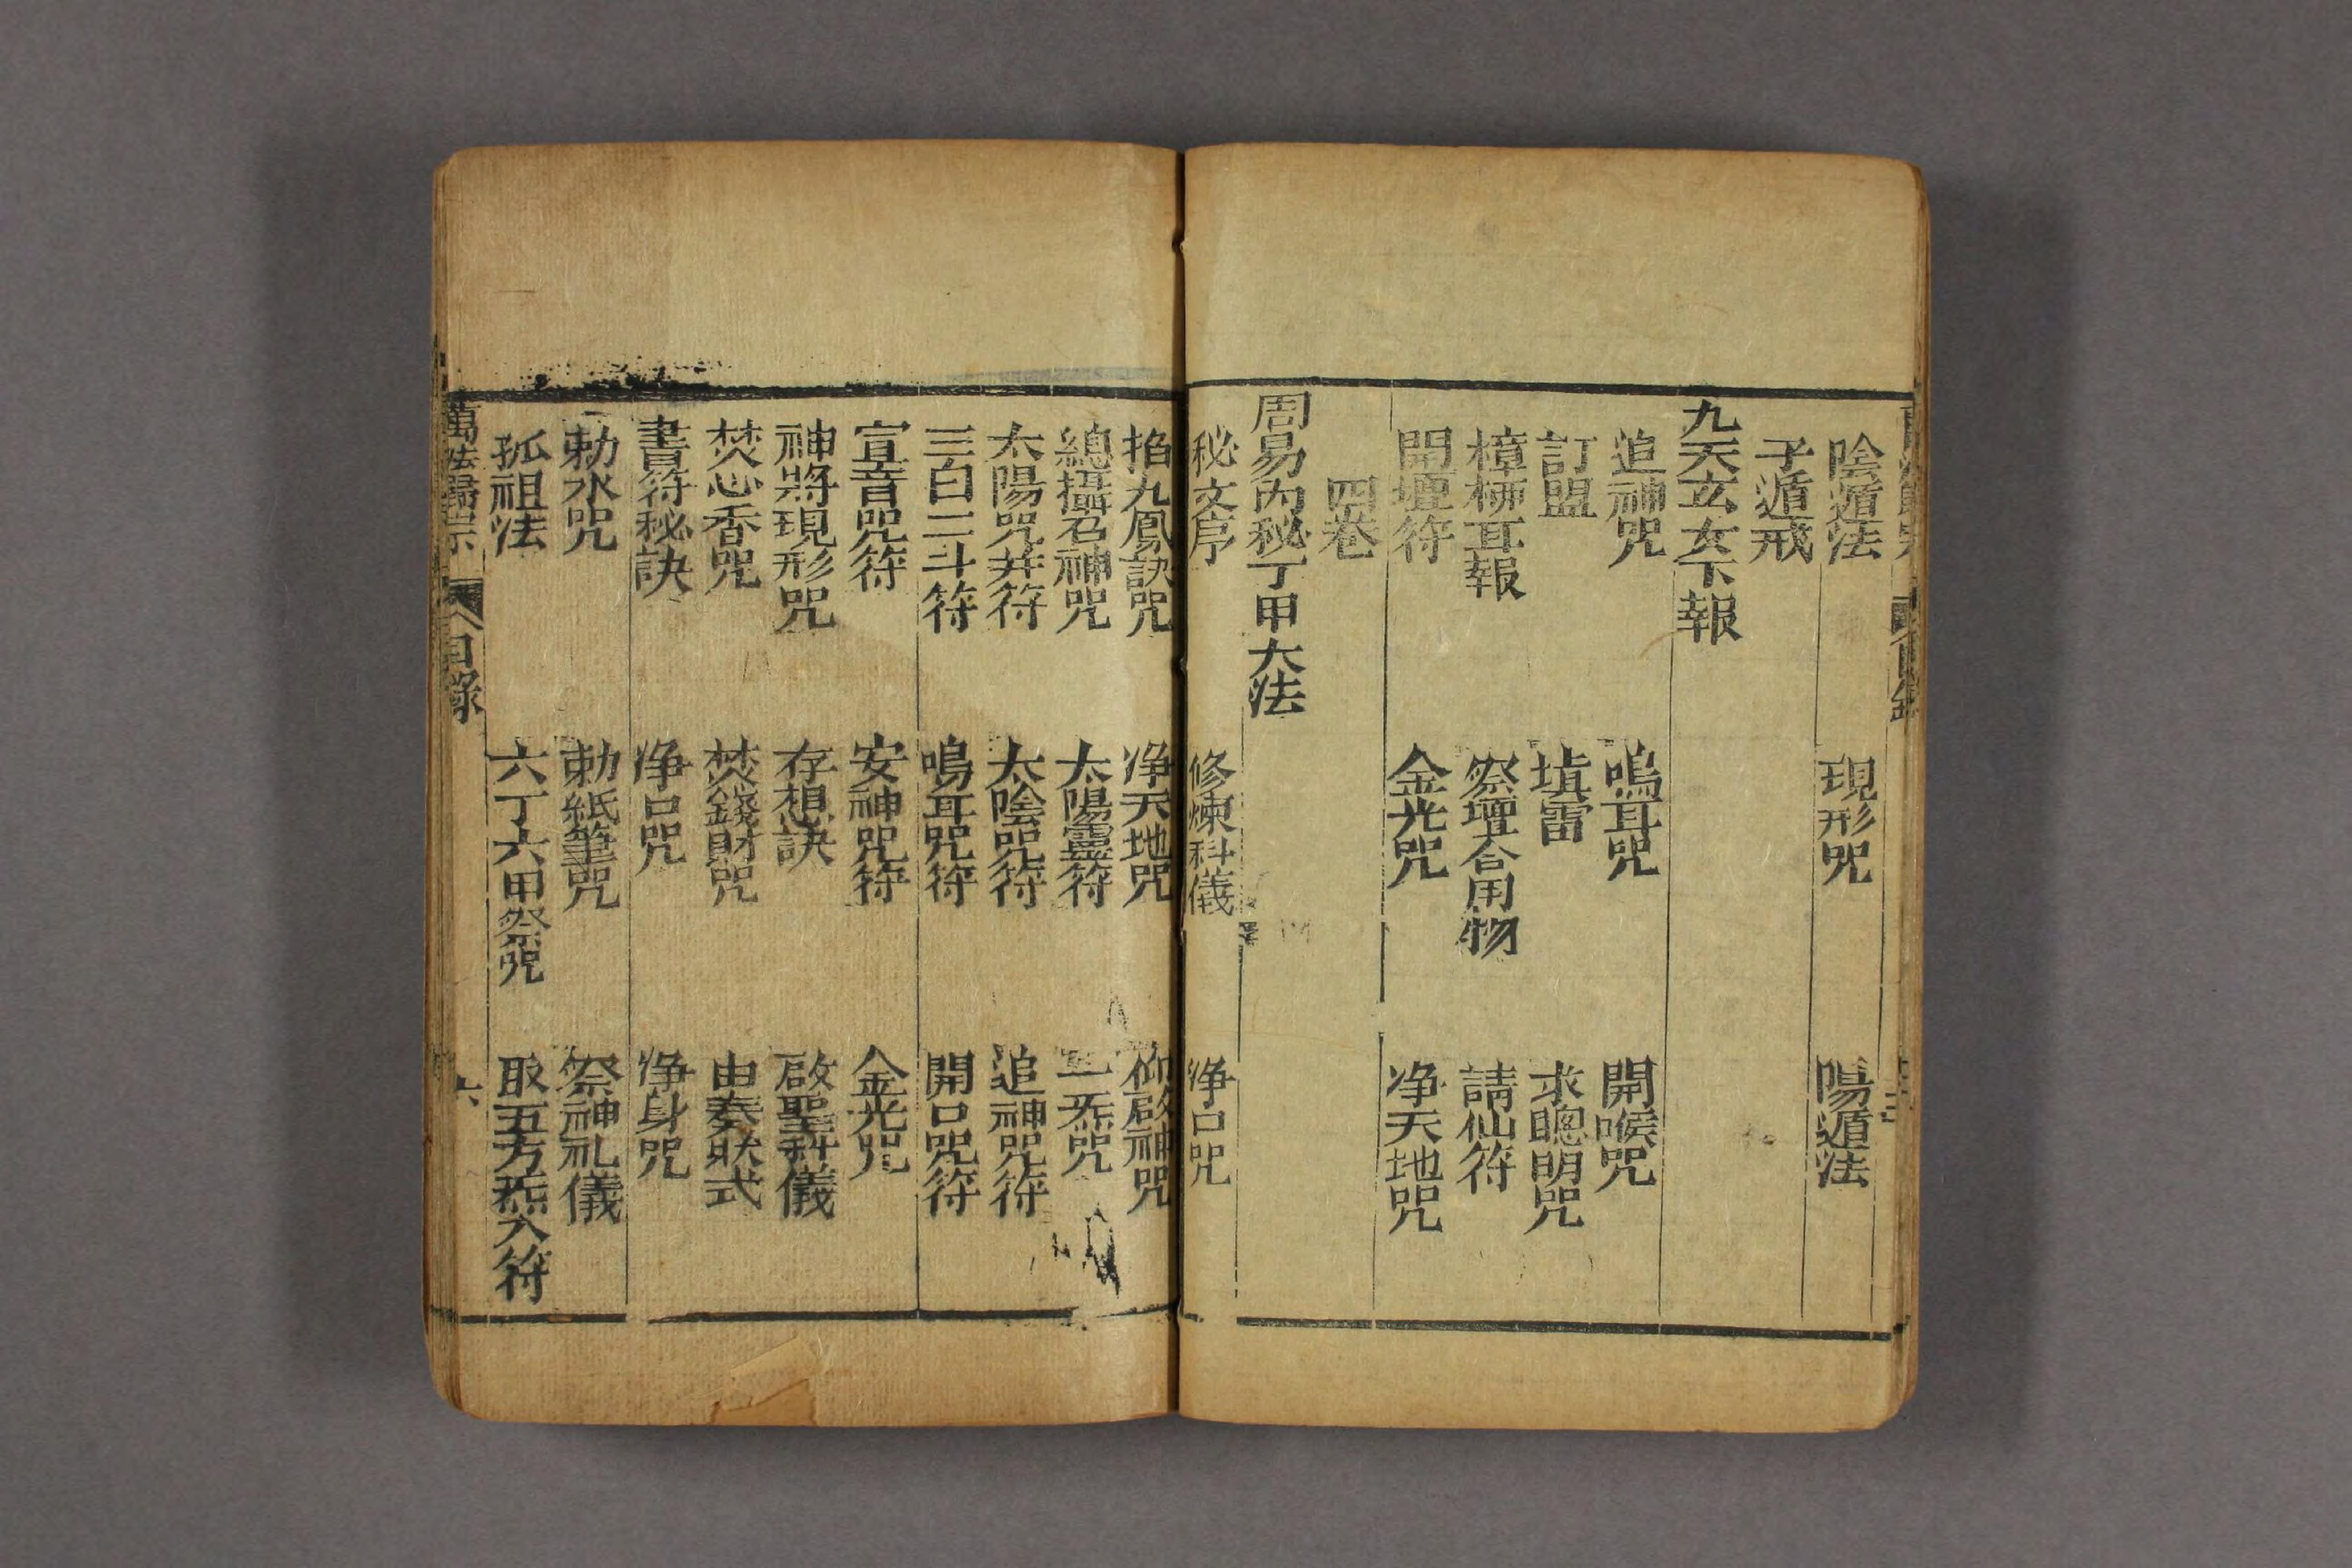 陰遁法 現形咒 陽遁法
子遁戒
九天玄女下報
追神咒 鳴耳咒 開喉咒
訂盟 塡雷 求聰明咒
樟柳耳報 祭壇合用物 請仙符
開壇符 金光咒 净天地咒
四卷
周易內秘丁甲大法
秘文序 修煉科儀 净口咒
掐九鳳訣咒 净天地咒 仰啟神咒
總攝召神咒 太陽靈符 二炁咒
太陽咒并符 太陰咒符 追神咒符
三白二斗符 鳴耳咒符 開口咒符
宣音咒符 安神咒符 金光咒
神將現形咒 存想訣 啟聖科儀
焚心香咒 焚錢財咒 由奏狀式
書符秘訣 净口咒 净身咒
勅水咒 勅紙筆咒 祭神礼儀
孤祖法 六丁六甲祭咒 取五方炁入符
萬法歸宗 目錄 六